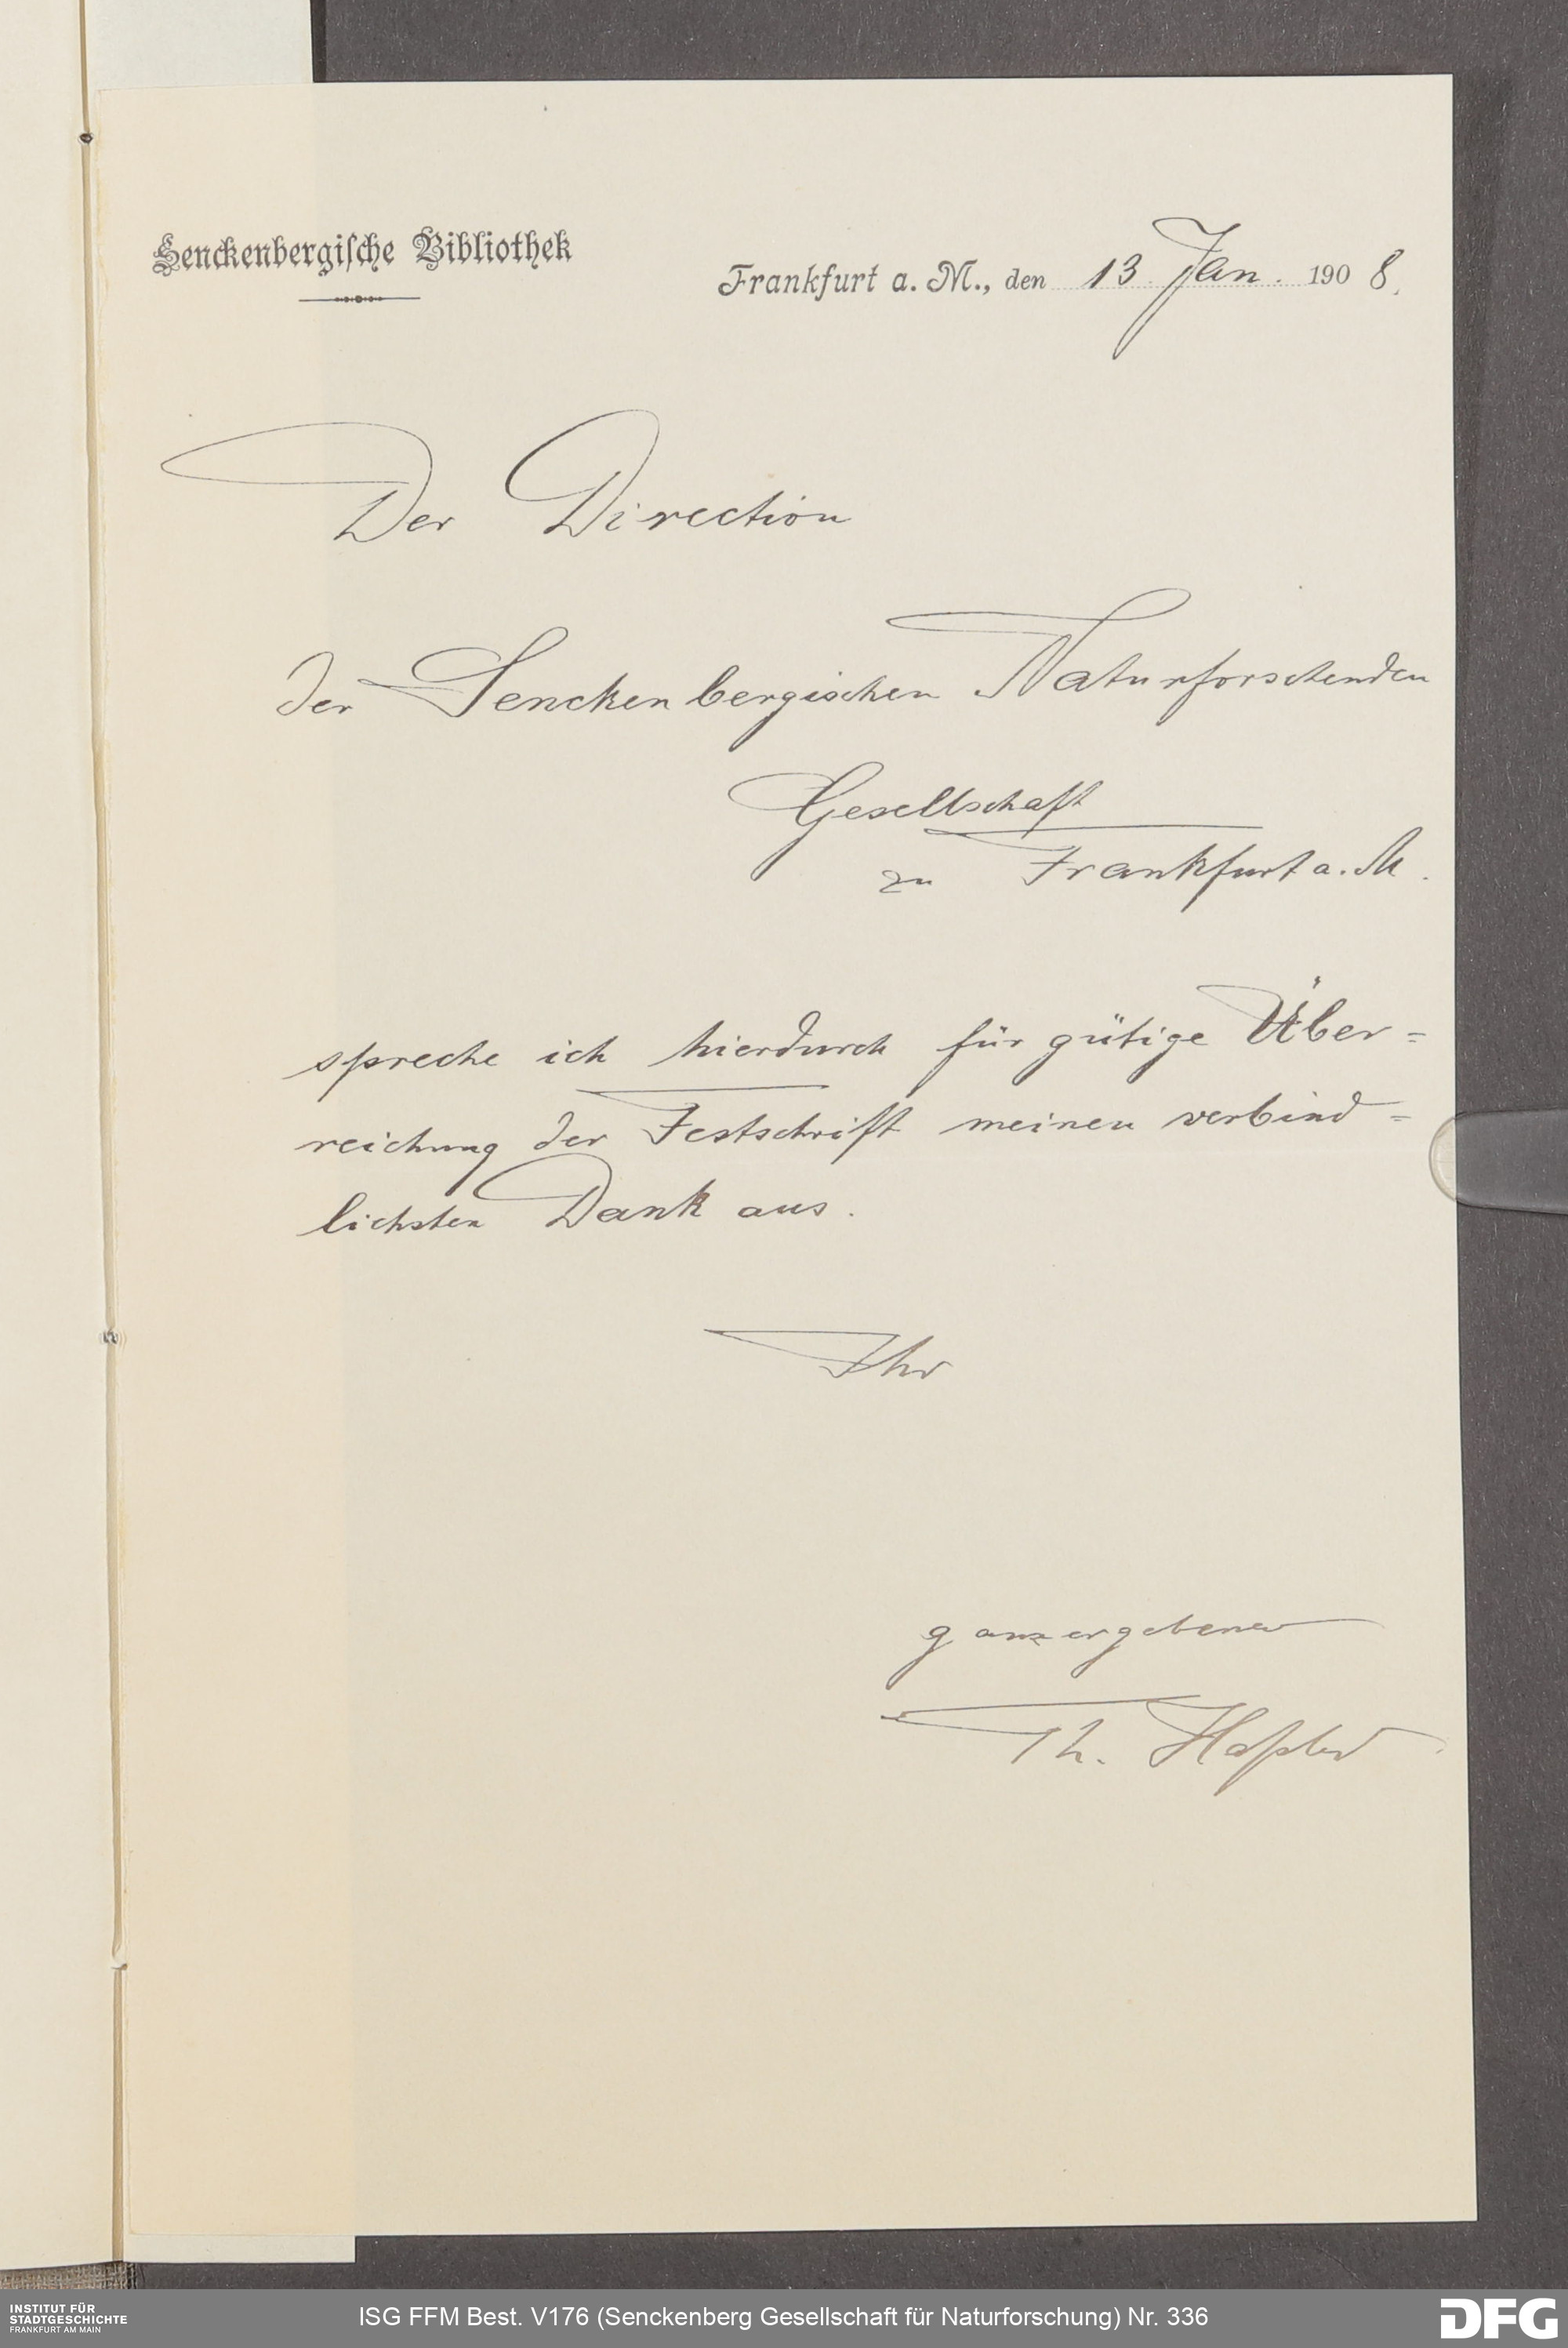 Senckenbergische Bibliothek
Frankfurt a. M., den 13. Jan. 1908.
Der Direction
der Senckenbergischen Naturforschenden
Gesellschaft
zu Frankfurt a. M.
spreche ich hierdurch für gütige Über=
reichung der Festschrift meinen verbind=
lichsten Dank aus.
Ihr
ganz ergebener
Th.
INSTITUT FÜR
STADTGESCHICHTE
FRANKFURT AM MAIN
ISG FFM Best. V176 (Senckenberg Gesellschaft für Naturforschung) Nr. 336
DFG